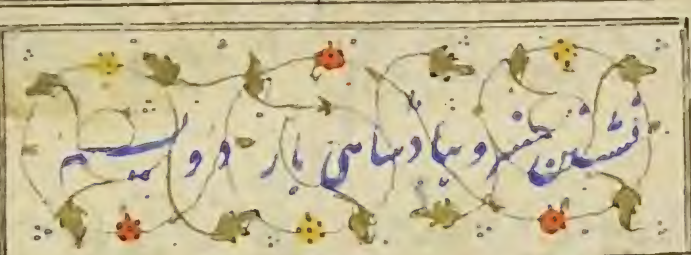 نشستن خسرو بپادشاهی بار دویم